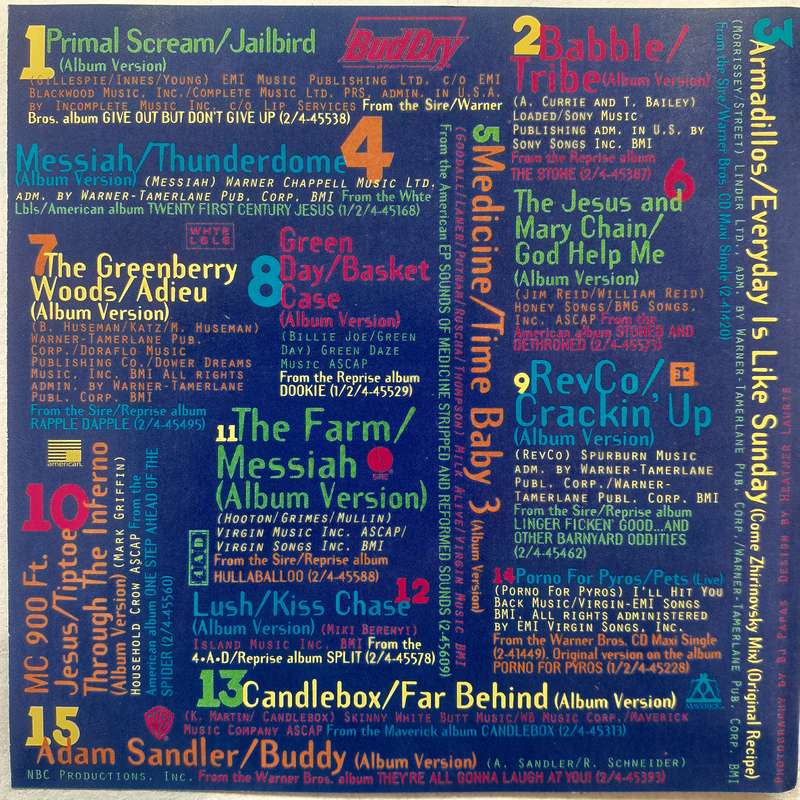 1
Primal Scream/Jailbird
(Album Version)
(Gillespie/Innes/Young) EMI Music Publishing Ltd. c/o EMI
Blackwood Music, Inc./Complete Music Ltd. PRS, admin. in U.S.A.
by Incomplete Music Inc. c/o Lip Services From the Sire/Warner
Bros. album GIVE OUT BUT DON'T GIVE UP (2/4-45538)
BudDry
2
Babble/
Tribe (Album Version)
(A. Currie and T. Bailey)
Loaded/Sony Music
Publishing adm. in U.S. by
Sony Songs Inc. BMI
From the Reprise album
THE STONE (2/4-45387)
3
Armadillos/Everyday Is Like Sunday (Come Zhirinovsky Mix) (Original Recipe)
(Morrissey/Street) Linder Ltd., adm. by Warner-Tamerlane Pub. Corp./Warner-Tamerlane Pub. Corp. BMI
From the Sire/Warner Bros. CD Maxi Single (2-41720)
4
Messiah/Thunderdome
(Album Version) (Messiah) Warner Chappell Music Ltd.
adm. by Warner-Tamerlane Pub. Corp. BMI From the Whte
Lbls/American album TWENTY FIRST CENTURY JESUS (1/2/4-45168)
WHTE
LBLS
5
Medicine/Time Baby 3 (Album Version)
From the American EP SOUNDS OF MEDICINE STRIPPED AND REFORMED SOUNDS (2-45609)
6
The Jesus and
Mary Chain/
God Help Me
(Album Version)
(Jim Reid/William Reid)
Honey Songs/BMG Songs.
Inc. ASCAP From the
American album STONED AND
DETHRONED (2/4-45573)
7
The Greenberry
Woods/Adieu
(Album Version)
(B. Huseman/Katz/M. Huseman)
Warner-Tamerlane Pub.
Corp./Doraflo Music
Publishing Co./Dower Dreams
Music, Inc. BMI All rights
admin. by Warner-Tamerlane
Publ. Corp. BMI
From the Sire/Reprise album
RAPPLE DAPPLE (2/4-45495)
8
Green
Day/Basket
Case
(Album Version)
(Billie Joe/Green
Day) Green Daze
Music ASCAP
From the Reprise album
DOOKIE (1/2/4-45529)
9
RevCo/
Crackin' Up
(Album Version)
r
(RevCo) Spurburn Music
adm. by Warner-Tamerlane
Publ. Corp./Warner-
Tamerlane Publ. Corp. BMI
From the Sire/Reprise album
LINGER FICKEN' GOOD...AND
OTHER BARNYARD ODDITIES
(2/4-45462)
american.
10
MC 900 Ft.
Jesus/Tiptoe
Through The Inferno
(Album Version) (Mark Griffin)
Household Crow ASCAP From the
American album ONE STEP AHEAD OF THE
SPIDER (2/4-45560)
11
The Farm/
Messiah
(Album Version)
SIRE
(Hooton/Grimes/Mullin)
Virgin Music Inc. ASCAP/
Virgin Songs Inc. BMI
From the Sire/Reprise album
HULLABALOO (2/4-45588)
4AD
12
Lush/Kiss Chase
(Album Version) (Miki Berenyi)
Island Music Inc. BMI From the
4•A•D/Reprise album SPLIT (2/4-45578)
13
Candlebox/Far Behind (Album Version)
(K. Martin/ Candlebox) Skinny White Butt Music/WB Music Corp./Maverick
Music Company ASCAP From the Maverick album CANDLEBOX (2/4-45313)
MAVERICK
14
Porno For Pyros/Pets (Live)
(Porno For Pyros) I'll Hit You
Back Music/Virgin-EMI Songs
BMI. All rights administered
by EMI Virgin Songs Inc.
From the Warner Bros. CD Maxi Single
(2-41449). Original version on the album
PORNO FOR PYROS (1/2/4-45228)
15
Adam Sandler/Buddy (Album Version) (A. Sandler/R. Schneider)
NBC Productions, Inc. From the Warner Bros. album THEY'RE ALL GONNA LAUGH AT YOU! (2/4-45393)
Photography by BJ Papas Design by Heather Laurie